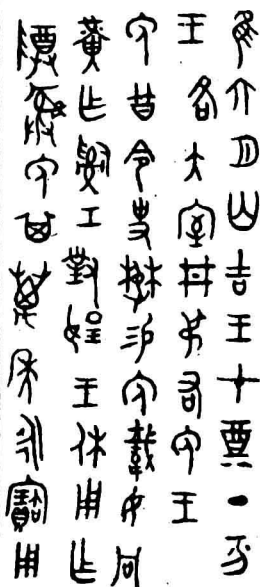 隹六月初吉王才奠丁亥
王各大室丼弔右免王
免曆令史懋易免載市冋
黃乍𤔲工對揚王休用乍
尊彝免其萬年永寶用